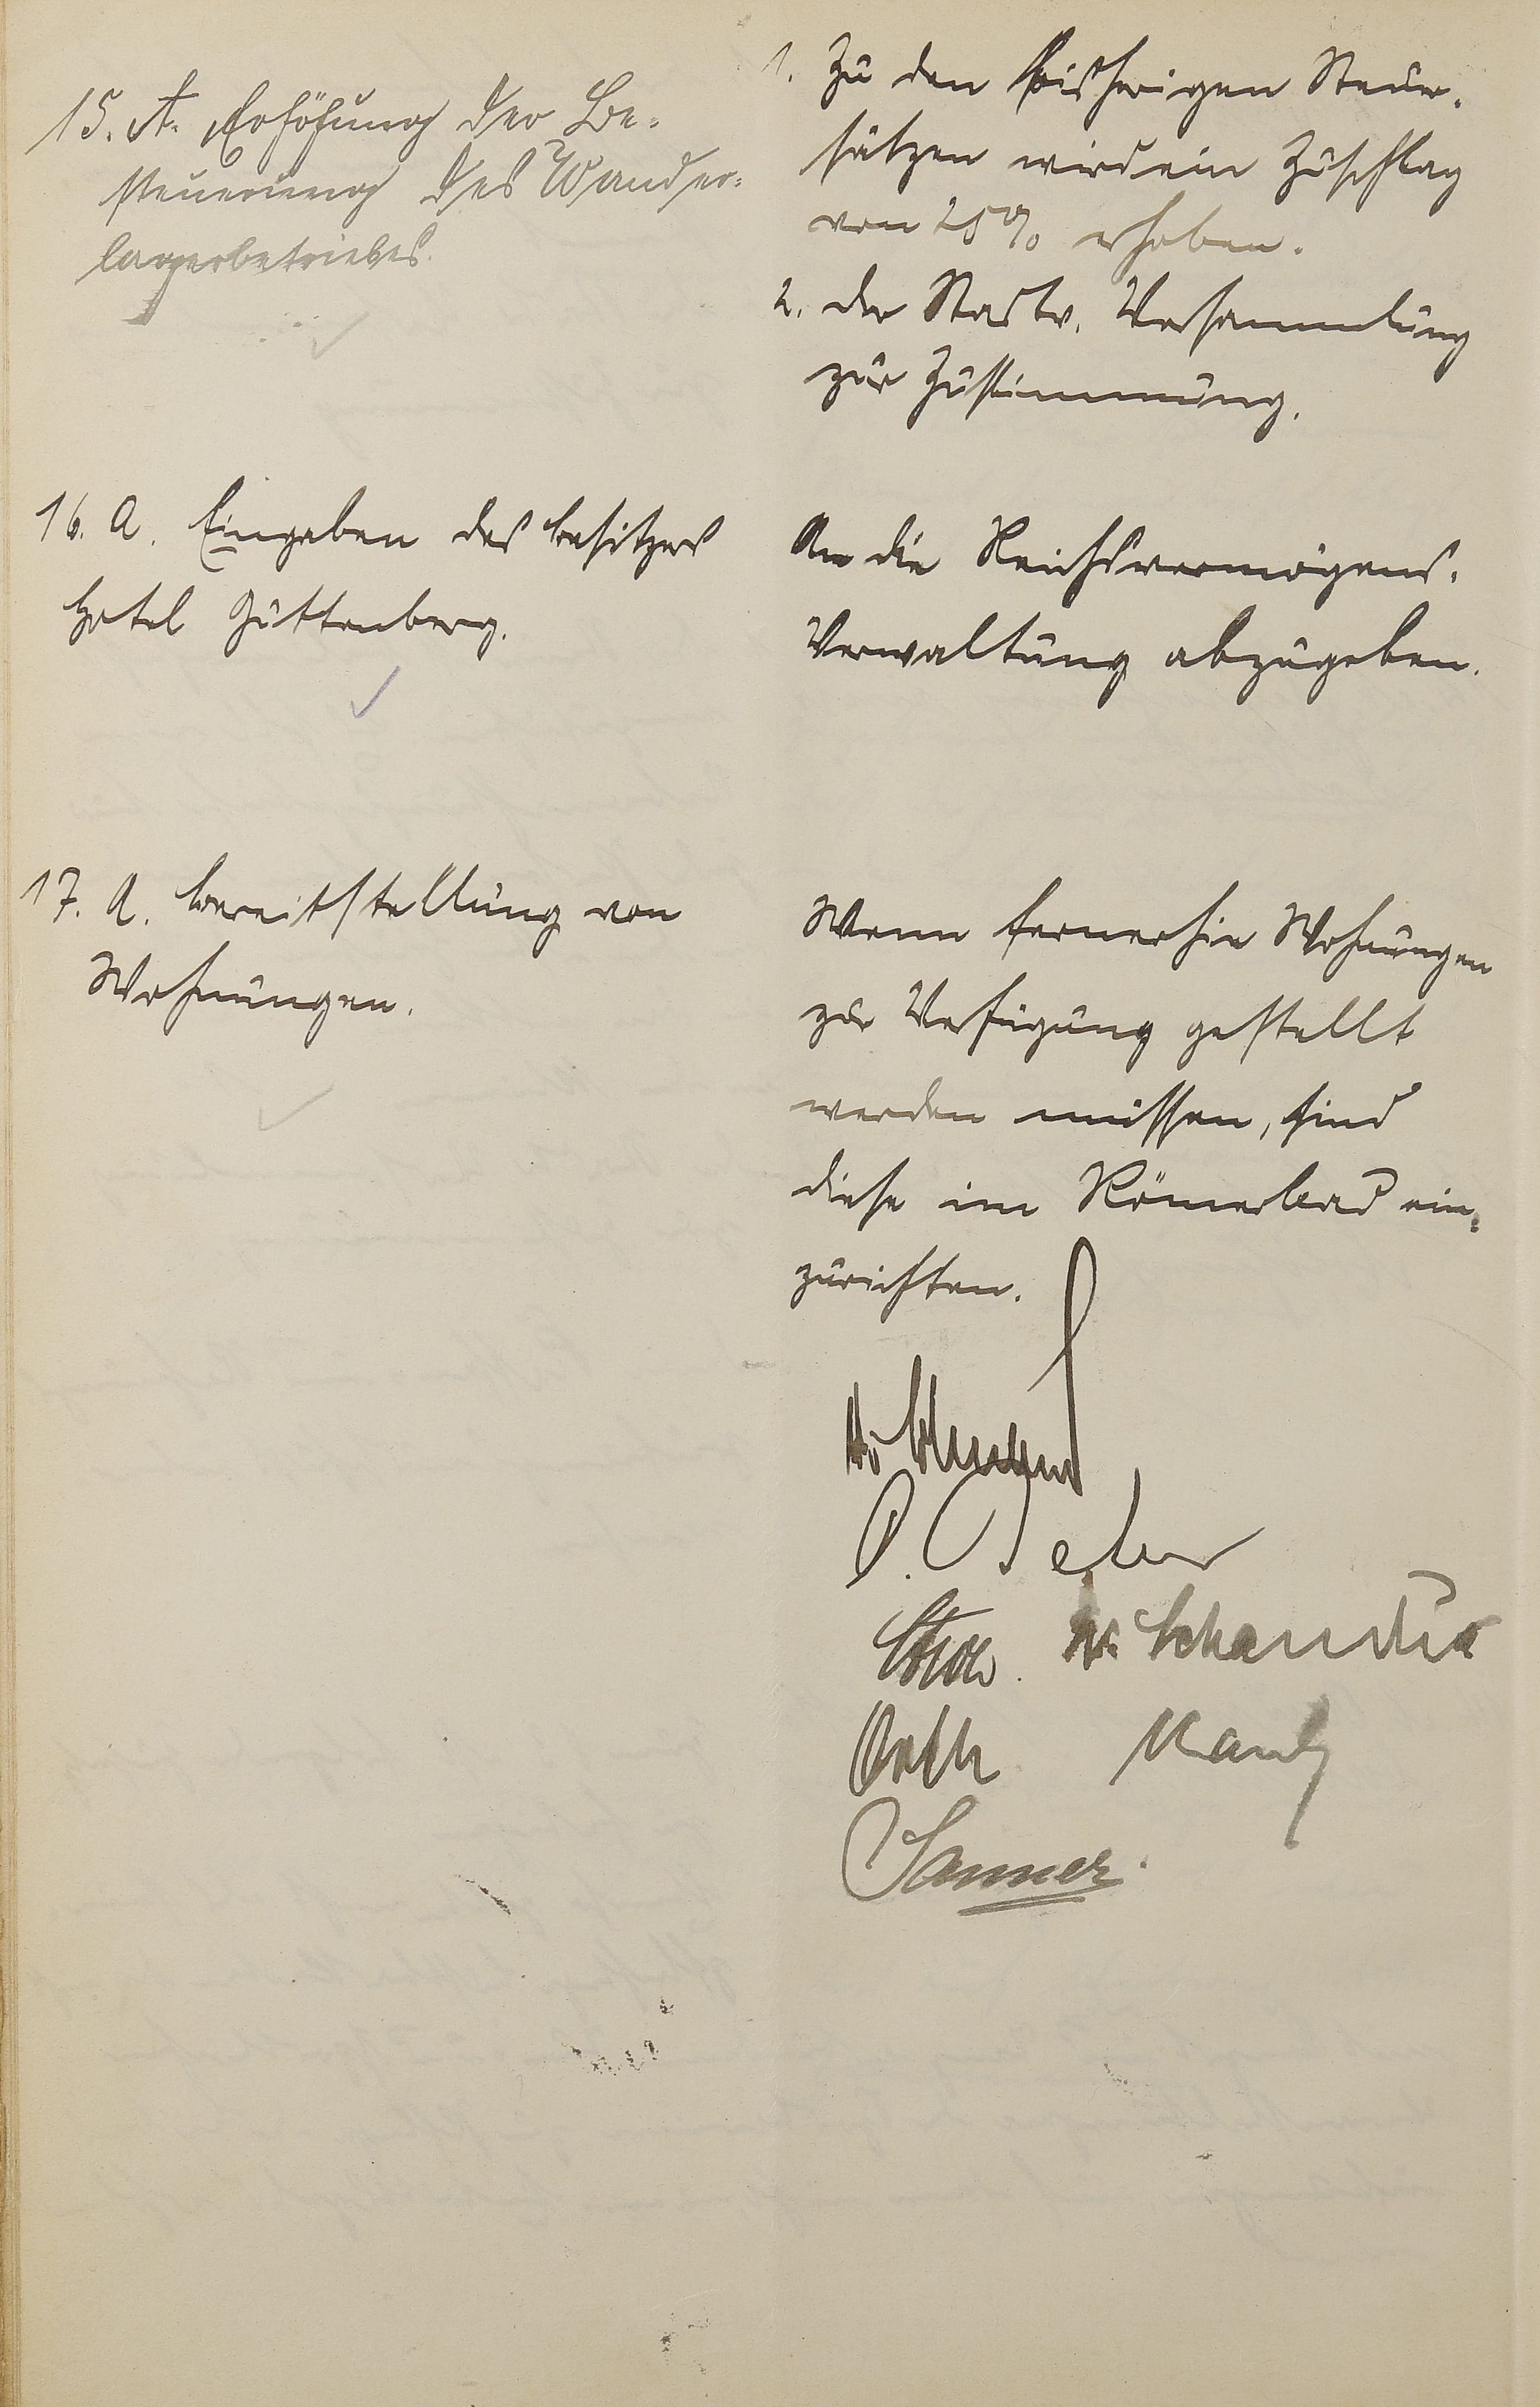 15. A. Erhöhung der Be-
steuerung des Wander-
lagerbetriebes.
1. Zu den bisherigen Steuer-
sätzen wird ein Zuschlag
von 25% erhoben.
2. der Stadtv. Versammlung
zur Zustimmung.
16. A. Eingaben des Besitzers
Hotel Guttenberg.
An die Reichsvermögens-
Verwaltung abzugeben.
17. A. Bereitstellung von
Wohnungen.
Wenn fernerhin Wohnungen
zur Verfügung gestellt
werden müssen, sind
diese im Römerbad ein-
zurichten.
Orth
Sanner.